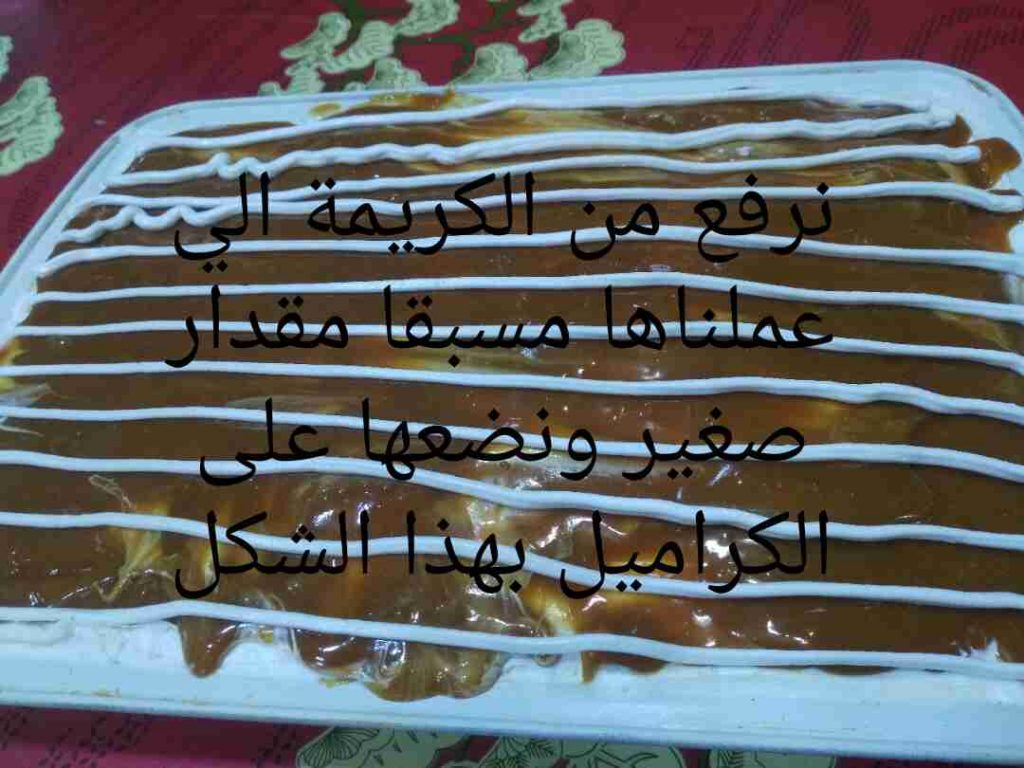 نرفع من الكريمة الي
عملناها مسبقا مقدار
صغير ونضعها على
الكراميل بهذا الشكل